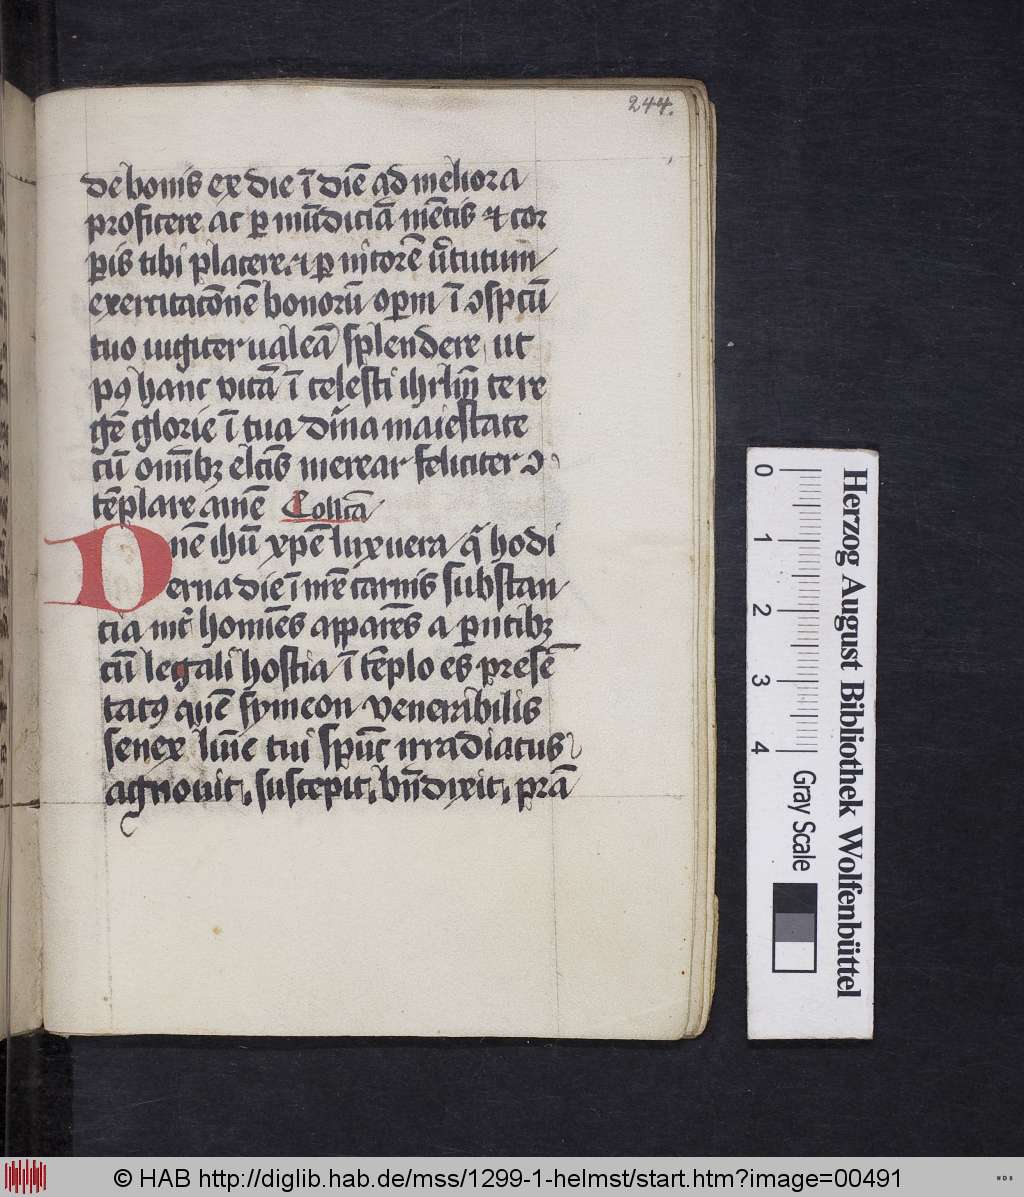 244.
de bonis ex die ī diē ad meliora
proficere ac ꝑ mūdiciā mētis et cor
ꝑis tibi placere. et ꝑ nitorē v̄tutum
exercitacōnē bonorū oꝑm ī ɔspcū
tuo iugiter ualeā splendere ut
pꝰ hanc vitā ī celesti ihrlm̄ te re
gē glorie ī tua diīna maiestate
cū om̄ibꝫ elcīs merear feliciter ɔ
tēplare amē Collcā
Dn̄e ihū xp̄e lux uera q̄ hodi
erna die ī nr̄e carnis substan
tia int̄ homīes apparēs a ꝑntibꝫ
cū legali hostia ī tēplo es presē
tatꝰ quē symeon venerabilis
senex lūīe tui sp̄uc irradiatus
agnouit, suscepit, bn̄dixit, prā
Herzog August Bibliothek Wolfenbüttel
0 1 2 3 4 Gray Scale
© HAB http://diglib.hab.de/mss/1299-1-helmst/start.htm?image=00491